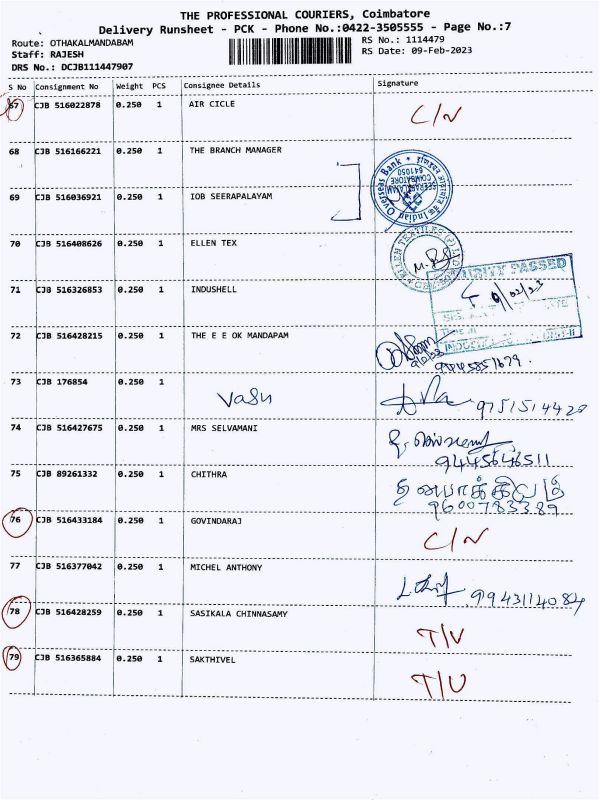 THE PROFESSIONAL COURIERS, Coimbatore
Delivery Runsheet - PCK - Phone No.:0422-3505555 - Page No.:7
Route: OTHAKALMANDABAM
RS No.: 1114479
Staff: RAJESH
RS Date: 09-Feb-2023
DRS No.: DCJB111447907
S No Consignment No Weight PCS Consignee Details Signature
67 CJB 516022878 0.250 1 AIR CICLE C/N
68 CJB 516166221 0.250 1 THE BRANCH MANAGER
Indian Overseas Bank
SEERAPALAYAM
COIMBATORE
641050
69 CJB 516036921 0.250 1 IOB SEERAPALAYAM
70 CJB 516408626 0.250 1 ELLEN TEX
ELLEN TEXTILES (P) LTD
SECURITY PASSED
71 CJB 516326853 0.250 1 INDUSHELL
72 CJB 516428215 0.250 1 THE E E OK MANDAPAM
73 CJB 176854 0.250 1 Vasu 9751514428
74 CJB 516427675 0.250 1 MRS SELVAMANI
9445646511
75 CJB 89261332 0.250 1 CHITHRA
9600783389
76 CJB 516433184 0.250 1 GOVINDARAJ C/N
77 CJB 516377042 0.250 1 MICHEL ANTHONY 9943114084
78 CJB 516428259 0.250 1 SASIKALA CHINNASAMY T/V
79 CJB 516365884 0.250 1 SAKTHIVEL T/U